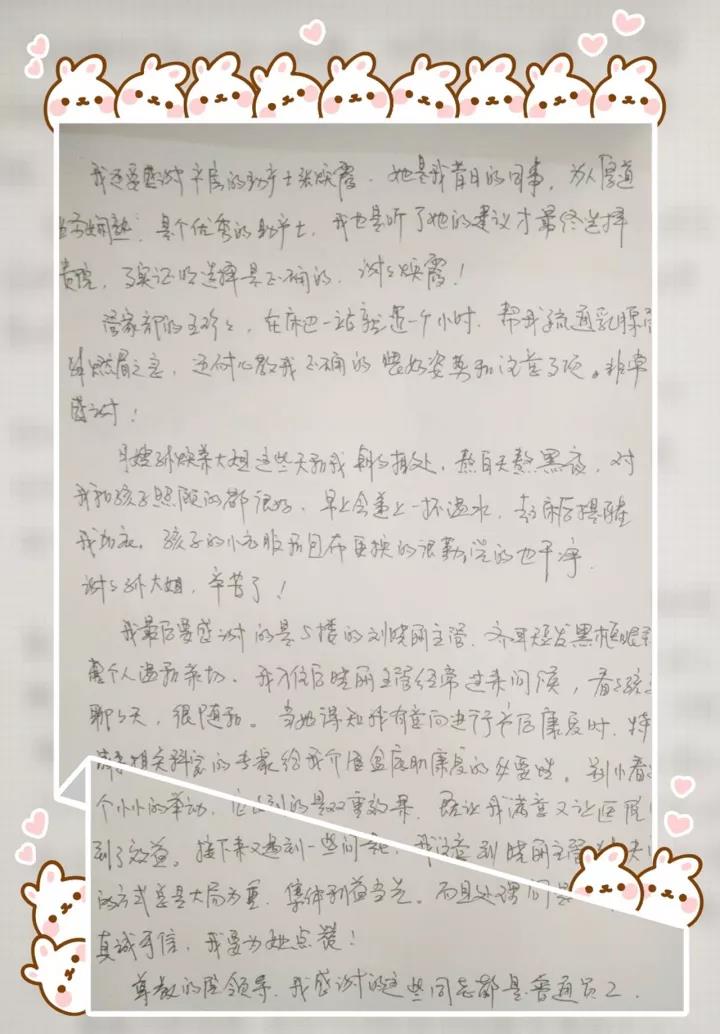 我还要感谢产房的助产士张焕霞. 她是我昔日的同事, 为人厚道
娴熟. 是个优秀的助产士. 我也是听了她的建议才最终选择
贵院, 事实证明选择是正确的. 谢谢焕霞!
管家部的王珍珍, 在床边一站就是一个小时. 帮我疏通乳腺管
解燃眉之急, 还耐心教我正确的喂奶姿势和注意事项。非常
感谢!
月嫂孙焕荣大姐这些天和我朝夕相处, 熬白天熬黑夜. 对
我和孩子照顾的都很好. 早上会递上一杯温水, 起床后提醒
我 孩子的小衣服和尿布更换的很勤洗的也干净.
谢谢孙大姐, 辛苦了!
我最后要感谢的是5楼的刘晓丽主管. 齐耳短发黑框眼
整个人温和亲切. 我入住后晓丽主管经常过来问候, 看看孩
聊聊天, 很随和。当她得知我有意向进行产后康复时. 特
请相关科室的专家给我介绍盆底肌康复的必要性。别小看
个小小的举动, 它达到的是双重效果. 既让我满意又让医院
到了效益。接下来又遇到一些问题, 我注意到晓丽主管
的方式总是大局为重. 集体利益当先。而且处理问
真诚可信, 我要为她点赞!
尊敬的院领导. 我感谢的这些同志都是普通员工.